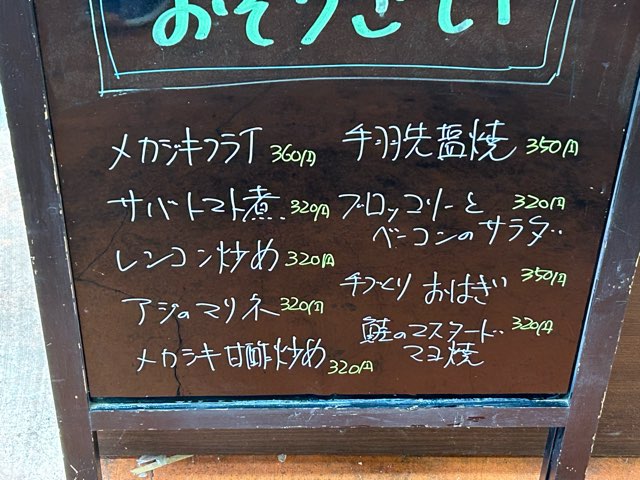 おそうざい
メカジキフライ 360円
サバトマト煮 320円
レンコン炒め 320円
アジのマリネ 320円
メカジキ甘酢炒め 320円
手羽先塩焼 350円
ブロッコリーと 320円
ベーコンのサラダ
手づくりおはぎ 350円
鮭のマスタード 320円
マヨ焼